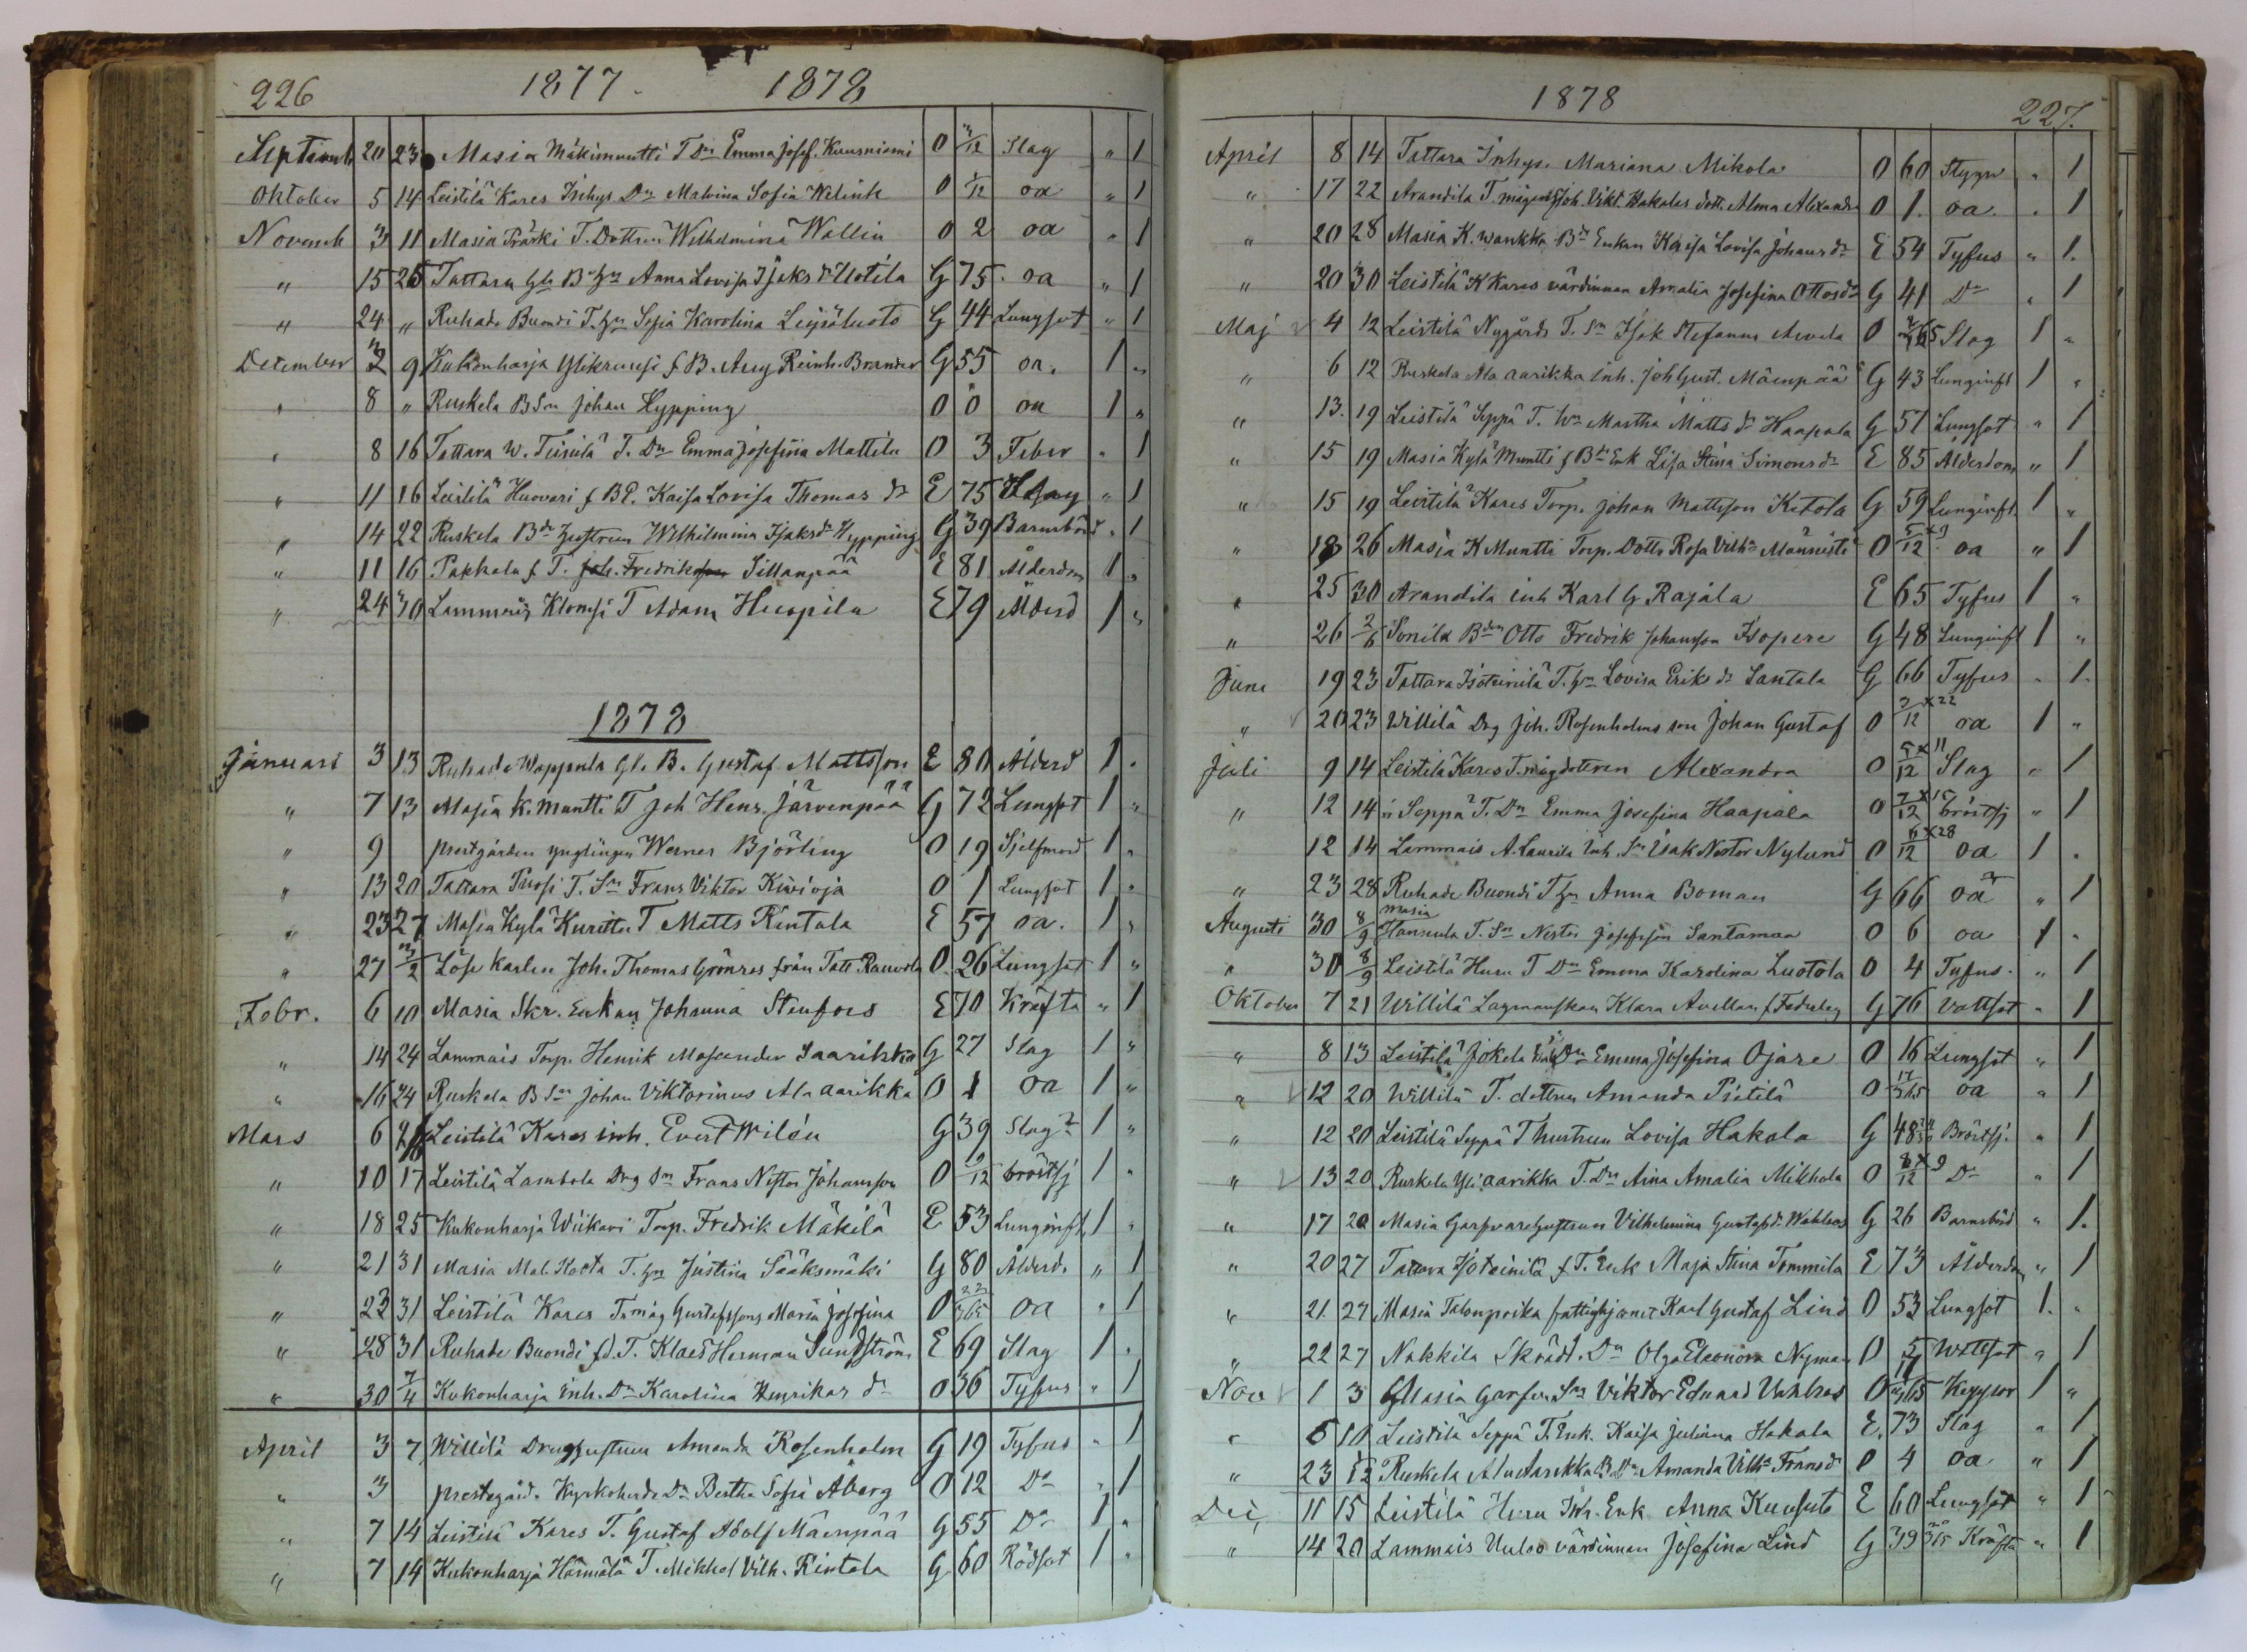 226 1877. 1878
Septemb. 20 23 Masia Mäkimuntti T Dr Emma Josef. Kuusniemi O /12 Slag " 1
Oktober 5 14 Leistilä Kares Inhys Dr Malvina Sofia Welink O 1/12 oa " 1
Novemb 3 11 Masia Prärki T. Dottren Wilhelmina Wallin O 2 oa " 1
" 15 25 Tattara Gla B hn Anna Lovisa Isaks dr Uotila G 75 oa " 1
" 24 " Ruhade Buondi T. hn Sofia Karolina Leijäluoto G 44 Lungsot " 1
December 2 9 Kukonharja Ylikrausi f B. Aug Reinh. Brander G 55 oa. 1 "
" 8 " Ruskela B Sn Johan Hypping O 0 oa 1 "
" 8 16 Tattara W. Teinilä T. Dr Emma Josefina Mattila O 3 Feber " 1
" 11 16 Leistilä Huovari f B E. Kaisa Lovisa Thomas dr E 75 " 1
" 14 22 Ruskela Bde hustrun Wilhelmina Isaksdr Hypping G 39 Barnsbörd " 1
" 11 16 Pakkala f T. Joh. Fredrikson Sillanpää E 81 Ålderdom 1 "
" 24 30 Lammais Klomsi T Adam Heopila E 79 Ålderd 1 "
1878
Januari 3 13 Ruhade Wappula Gl. B. Gustaf Mattsson E 80 Ålderd 1 "
" 7 13 Masia K. Muntti T Joh Henr. Järvenpää G 72 Lungsot 1 "
" 9 prestgården ynglingen Werner Björling O 19 Sjelfmord 1 "
" 13 20 Tattara Pursi T. Sn Frans Viktor Kivioja O 1 Lungsot 1 "
" 23 27 Masia Kylä Kuritto T Matts Rintala E 57 oa. 1 "
" 27 3/2 Löse karlen Joh. Thomas Grönros från Tatt Rauvola O 26 Lungsot 1 "
Febr. 6 10 Masia Skr. Enkan Johanna Stenfors E 70 Kräfta " 1
" 14 24 Lammais Torp. Henrik Mascander Saarikkia G 27 Slag 1 "
" 16 24 Ruskela B Sn Johan Viktorinus Ala aarikka O 1 oa 1 "
Mars 6 Leistilä Kares inh. Evert Wilén G 39 Slag 1 "
" 10 17 Leistilä Lambola Drg Sn Frans Nestor Johansson O 9/12 bröstsj 1 "
" 18 25 Kukonharja Wiikari Torp. Fredrik Mäkilä E 53 Lunginfl. 1 "
" 21 31 Masia Mal. Kocta T. hn Justina Sääksmäki G 80 Ålderd. " 1
" 23 31 Leistilä Kares T. måg Gustafssons Maria Josefina O 22/365 oa " 1
" 28 31 Ruhade Buondi fd. T. Klaes Herman Sundström E 69 Slag 1 "
" 30 7/4 Kukonharja Inh. Dr Karolina Henrikas dr O 36 Tyfus " 1
April 3 7 Willilä Drughustrun Amanda Rosenholm G 19 Tyfus " 1
" 3 prestegård. Kyrkoherde Dr Bertha Sofia Åberg O 12 Do " 1
" 7 14 Leistilä Kares T. Gustaf Adolf Mäenpää G 55 Do 1 "
" 7 14 Kukonharja Härmälä T. Mikkel Vilh. Rintala G 60 Rödsot 1 "
1878 227.
April 8 14 Tattara Inhys. Mariana Mikola O 60 Stygn " 1
" 17 22 Arandila T. mågens Joh. Vikt. Hakalas dott. Alma Alexandra O 1. oa. " 1
" 20 28 Masia K. wankka Bde Enkan Kaisa Lovisa Johansdr E 54 Tyfus " 1.
" 20 30 Leistilä K Kares värdinnan Amalia Josefina Ottosdr G 41 Do " 1
Maj 4 12 Leistilä Nygårds T. Sn Isak Stefanus Arvela O 2/365 Slag 1 "
" 6 12 Ruskela Ala aarikka inh. Joh Gust. Mäenpää G 43 Lunginfl 1 "
" 13. 19 Leistilä Seppä T. hn Martha Matts dr Haapala G 57 Lungsot " 1
" 15 19 Masia Kylä Muntti f Bde Enk Lisa Stina Simonsdr E 85 Ålderdom " 1
" 15 19 Leistilä Kares Torp. Johan Mattsson Ketola G 59 Lunginfl. 1 "
" 18 26 Masia K Muntti Torp. Dottr Rosa Vilha Männistö O 5/12 x 9 oa " 1
" 25 30 Arandila inh Karl G Rajala E 65 Tyfus 1 "
" 26 2/6 Sonila Bden Otto Fredrik Johansson Isopere G 48 Lunginfl 1 "
Juni 19 23 Tattara Isoteinilä T. hn Lovisa Eriks dr Santala G 66 Tyfus " 1.
" 20 23 Willilä Drg Joh. Rosenholms son Johan Gustaf O 2/12 x 22 oa 1 "
Juli 9 14 Leistilä Kares T. mågdottren Alexandra O 5/12 x 11 Slag " 1
" 12 14 " Seppä T. Dr Emma Josefina Haapala O 7/12 x 15 bröstsj " 1
12 14 Lammais A. Laurila Inh. Sn Isak Nestor Nylund O 6/12 x 28 oa 1 "
" 23 28 Ruhade Buondi T hn Anna Boman G 66 oa " 1
Augusti 30 8/9 Masia Hannula T. Sn Nestor Josefsson Santamaa O 6 oa 1 "
" 30 8/9 Leistilä Huru T Dr Emma Karolina Luotola O 4 Tyfus. " 1
Oktober 7 21 Willilä Lagmanskan Klara Avellan f Federley G 76 Vattsot " 1
" 8 13 Leistilä Jokela Dr Emma Josefina Ojare O 16 Lungsot " 1
" 12 20 Willilä T. dottren Amanda Pietilä O 17/365 oa " 1
" 12 20 Leistilä Seppä T hustrun Lovisa Hakala G 48 Bröstsj. " 1
" 13 20 Ruskela Yli aarikka T. Dr Aina Amalia Mikkola O 8/12 x 9 Do " 1
" 17 20 Masia Garfvarehustrun Vilhelmina Gustafsdr Wahlroos G 26 Barnsbörd " 1.
" 20 27 Tattara Isoteinilä f T. Enk Maja Stina Tommila E 73 Ålderdom " 1
" 21. 27 Masia Talonpoika fattighjonet Karl Gustaf Lind O 53 Lungsot 1. "
" 22 27 Nakkila Skrädd. Dr Olga Eleonora Nyman O 5 Wattsot " 1
Nov 1 3 Masia Garfven Sn Viktor Edvard Wahlroos O 17/365 Keyyser 1 "
" 5 10 Leistilä Seppä T. Enk. Kaisa Juliana Hakala E. 73 Slag " 1
" 23 Ruskela Ala Aarikka B Dr Amanda Vilha Fransdr O 4 oa " 1
Dec, 11 15 Leistilä Huru Enk Anna Kuusisto E 60 Lungsot " 1
" 14 20 Lammais Uuloo värdinnan Josefina Lind G 39 Kräfta " 1